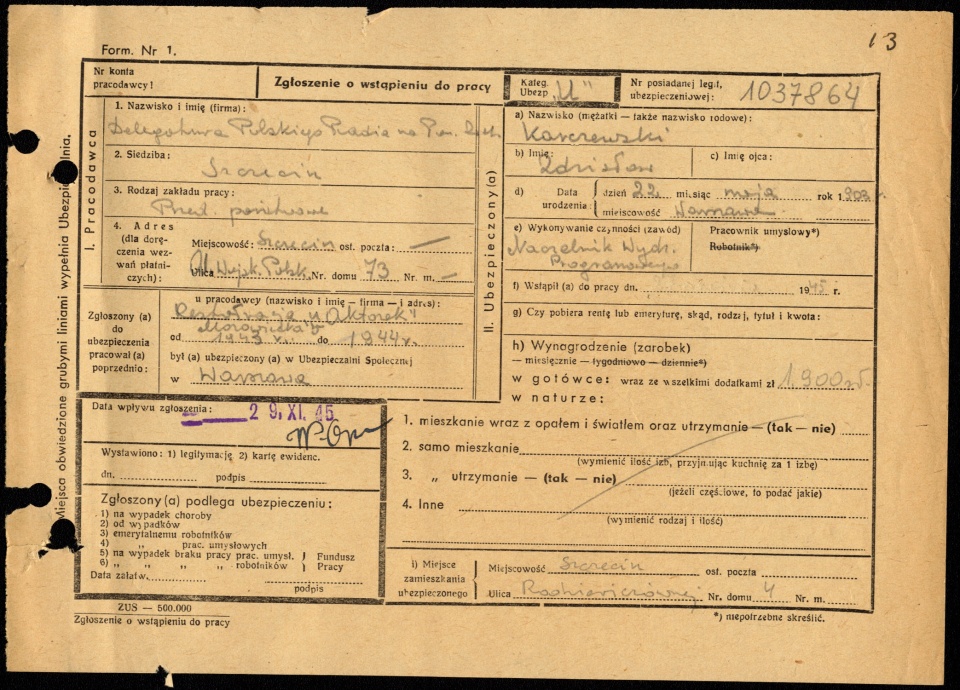 13
Form. Nr 1.
Nr konta
pracodawcy!
Zgłoszenie o wstąpieniu do pracy
Kateg.
Ubezp. „U"
Nr posiadanej legit,
ubezpieczeniowej: 1037864
Miejsca obwiedzione grubymi liniami wypełnia Ubezpieczalnia.
I. Pracodawca
1. Nazwisko i imię (firma):
Delegatura Polskiego Radia na Pom. Zach.
2. Siedziba:
Szczecin
3. Rodzaj zakładu pracy:
Przed. państwowe
4. Adres
(dla dorę-
czenia wez-
wań płatni-
czych):
Miejscowość: Szczecin ost. poczta: —
Ulica Al. Wojsk. Polsk. Nr. domu 73 Nr. m. —
Zgłoszony (a)
do
ubezpieczenia
pracował (a)
poprzednio:
u pracodawcy (nazwisko i imię — firma — i adres):
Restauracja „U Aktorek"
od 1943 r. do 1944 r.
był (a) ubezpieczony (a) w Ubezpieczalni Społecznej
w Warszawa
II. Ubezpieczony(a)
a) Nazwisko (mężatki — także nazwisko rodowe):
Karczewski
b) Imię:
Zdzisław
c) Imię ojca:
d) Data
urodzenia:
dzień 22 miesiąc maja rok 1903 r.
miejscowość Warszawa
e) Wykonywanie czynności (zawód)
Naczelnik Wydz.
Programowego
Pracownik umysłowy*)
Robotnik*)
f) Wstąpił (a) do pracy dn. 1945 r.
g) Czy pobiera rentę lub emeryturę, skąd, rodzaj, tytuł i kwota:
h) Wynagrodzenie (zarobek)
— miesięcznie — tygodniowo — dziennie*)
w gotówce: wraz ze wszelkimi dodatkami zł 1.900 zł.
w naturze:
1. mieszkanie wraz z opałem i światłem oraz utrzymanie — (tak — nie)
2. samo mieszkanie
(wymienić ilość izb, przyjmując kuchnię za 1 izbę)
3. „ utrzymanie — (tak — nie)
(jeżeli częściowe, to podać jakie)
4. Inne
(wymienić rodzaj i ilość)
Data wpływu zgłoszenia: 29. XI. 45
Wystawiono: 1) legitymację 2) kartę ewidenc.
dn. podpis
Zgłoszony (a) podlega ubezpieczeniu:
1) na wypadek choroby
2) od wypadków
3) emerytalnemu robotników
4) „ prac. umysłowych
5) na wypadek braku pracy prac. umysł.
6) „ „ „ „ robotników
Fundusz
Pracy
Data załatw.
podpis
i) Miejsce
zamieszkania
ubezpieczonego
Miejscowość Szczecin ost. poczta
Ulica Nr. domu 4 Nr. m.
ZUS — 500.000
Zgłoszenie o wstąpieniu do pracy
*) niepotrzebne skreślić.